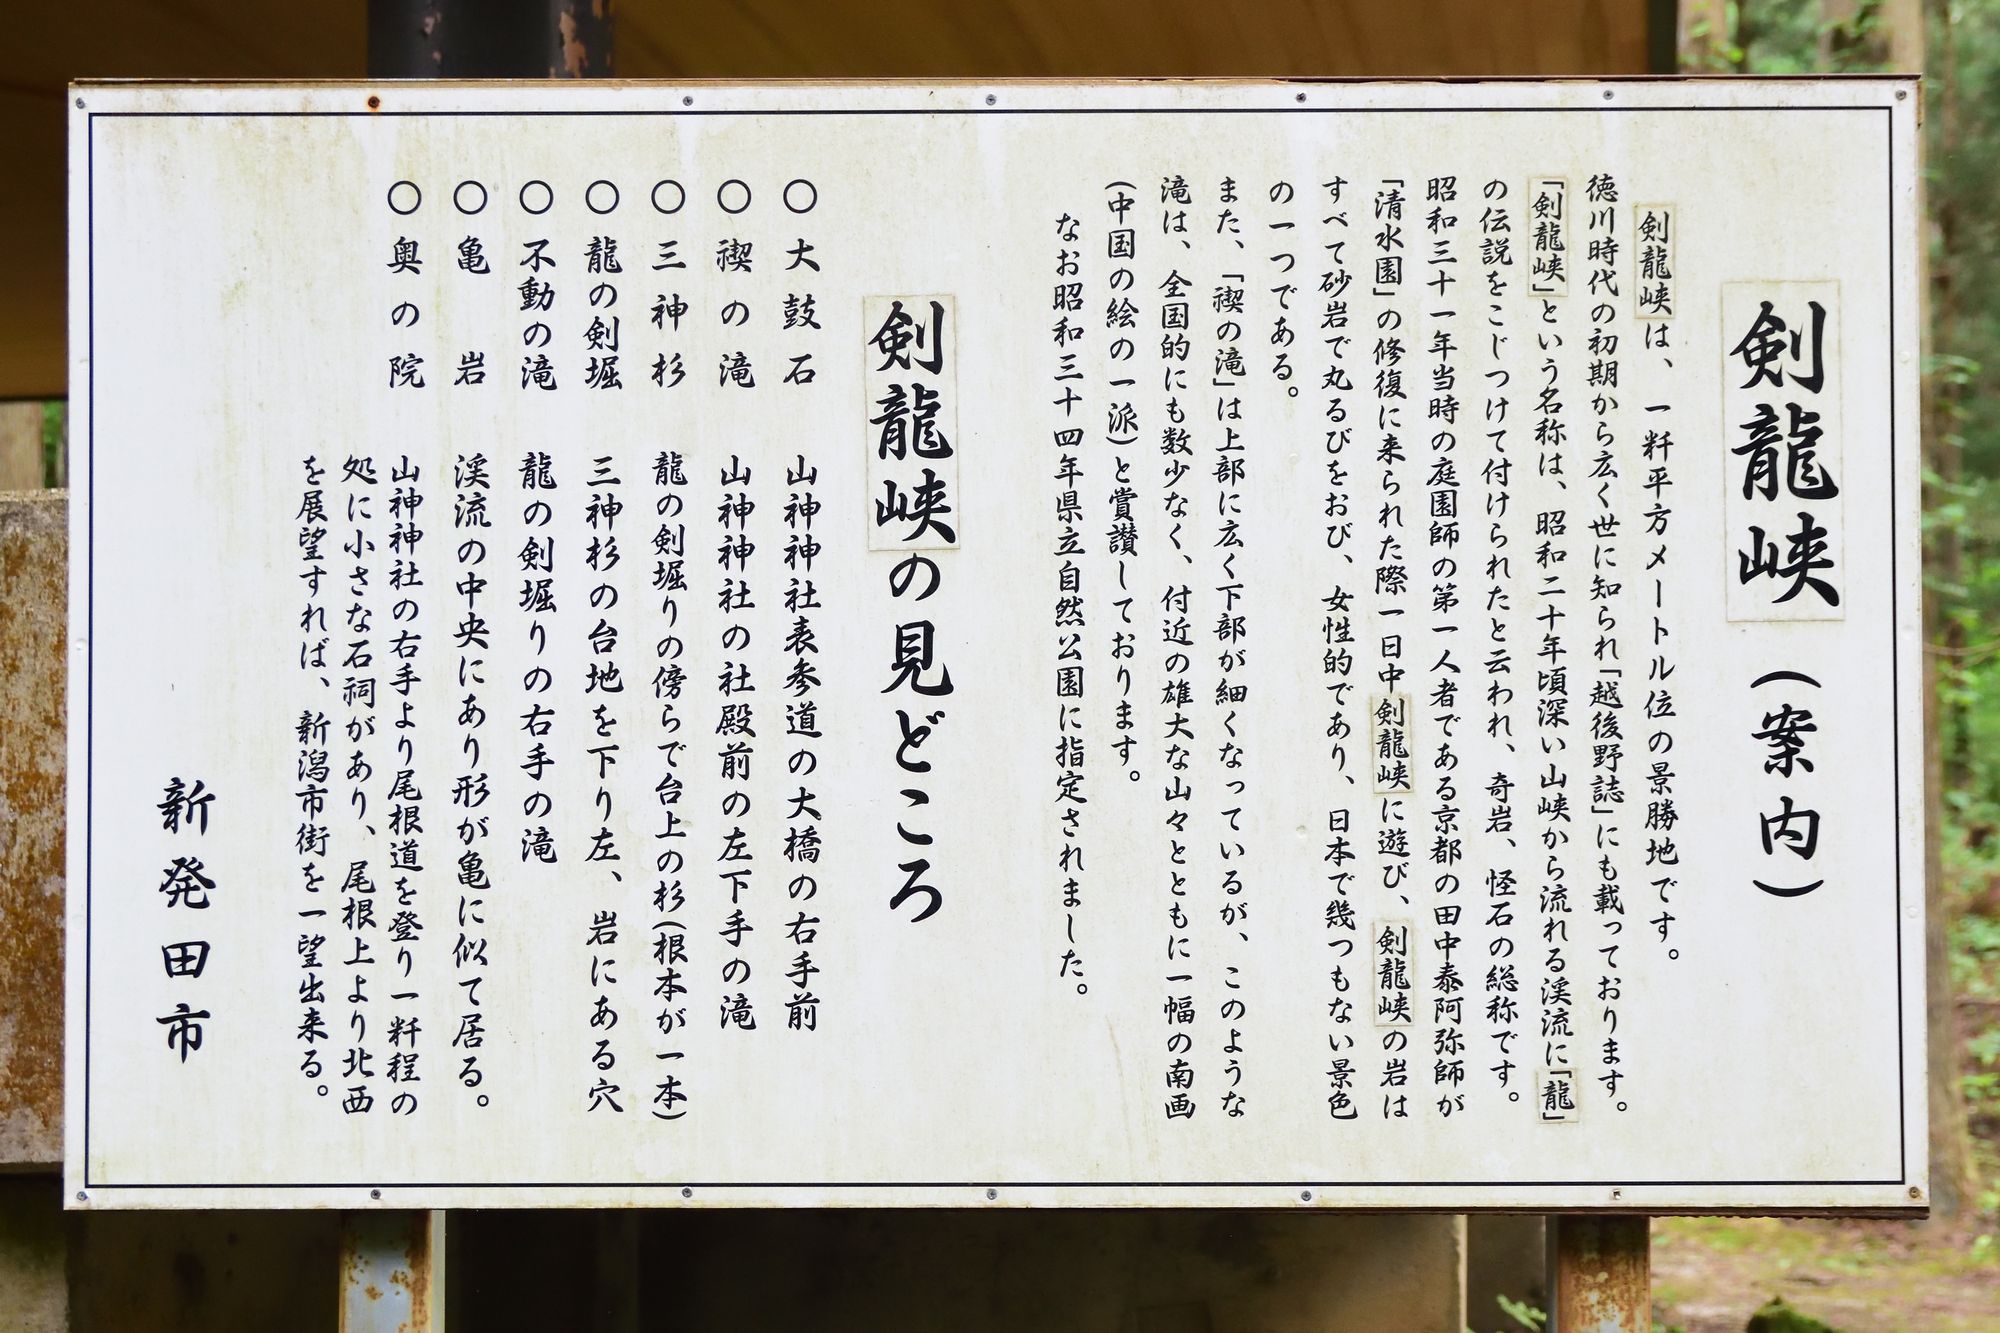 剣龍峡(案内)
剣龍峡は、一粁平方メートル位の景勝地です。
徳川時代の初期から広く世に知られ「越後野誌」にも載っております。
「剣龍峡」という名称は、昭和二十年頃深い山峡から流れる渓流に「龍」
の伝説をこじつけて付けられたと云われ、奇岩、怪石の総称です。
昭和三十一年当時の庭園師の第一人者である京都の田中泰阿弥師が
「清水園」の修復に来られた際一日中剣龍峡に遊び、剣龍峡の岩は
すべて砂岩で丸るびをおび、女性的であり、日本で幾つもない景色
の一つである。
また、「禊の滝」は上部に広く下部が細くなっているが、このような
滝は、全国的にも数少なく、付近の雄大な山々とともに一幅の南画
(中国の絵の一派)と賞讃しております。
なお昭和三十四年県立自然公園に指定されました。
剣龍峡の見どころ
○大鼓石 山神神社表参道の大橋の右手前
○禊の滝 山神神社の社殿前の左下手の滝
○三神杉 龍の剣堀りの傍らで台上の杉(根本が一本)
○龍の剣堀 三神杉の台地を下り左、岩にある穴
○不動の滝 龍の剣堀りの右手の滝
○亀岩 渓流の中央にあり形が亀に似て居る。
○奥の院 山神神社の右手より尾根道を登り一粁程の
処に小さな石祠があり、尾根上より北西
を展望すれば、新潟市街を一望出来る。
新発田市